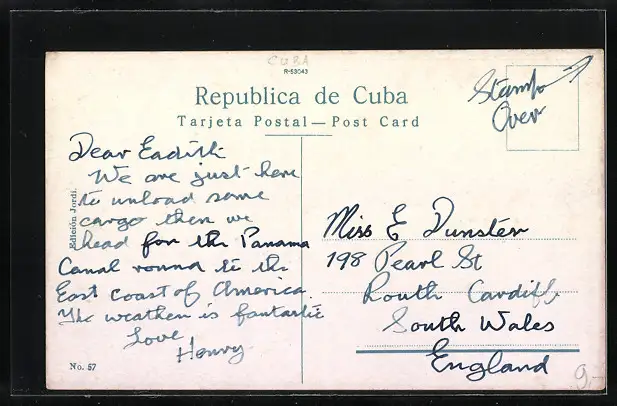 CUBA
R-53043
Republica de Cuba
Tarjeta Postal — Post Card
Stamp
Over
Dear Eadith
We are just here
to unload some
cargo then we
head for the Panama
Canal round to the
East coast of America
The weather is fantastic
Love
Henry
Edición Jordi.
No. 57
Miss E Dunster
198 Pearl St
Routh Cardiff
South Wales
England
9,-